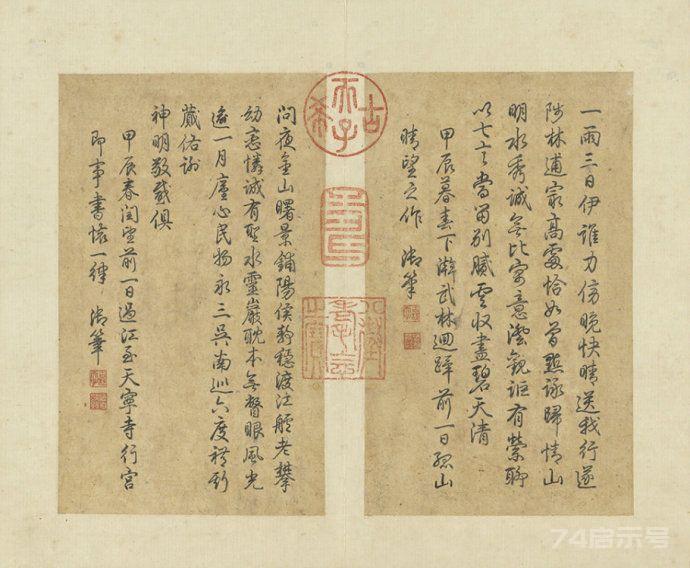 一雨三日伊誰力傍晚快晴送我行遂
陟林逋家高處恰如曾點詠歸情山
明水秀誠無比寄意澄觀詎有縈聊
以七言當留別膩雲收盡碧天清
甲辰暮春下澣武林迴蹕前一日孤山
晴望之作 御筆
古希天子
八徵耄念之寶
問夜金山曙景鋪陽侯靜穩渡江艫老攀
幼恋憐誠有聖水靈巖耽本無瞥眼風光
一月廑心民物永三吳南巡六度禮斯
蕆佑謝
神明敬感俱
甲辰春閏望前一日過江至天寧寺行宮
即事書懷一律 御筆
74启示号